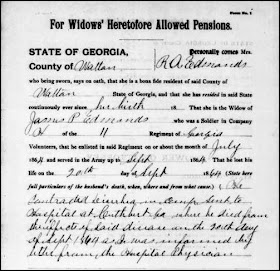 For Widows' Heretofore Allowed Pensions.
STATE OF GEORGIA, Personally comes Mrs.
County of Walton R. A. Edmonds
who being sworn, says on oath, that she is a bona fide resident of said County of
Walton State of Georgia, and that she has resided in said State
continuously ever since her birth 18 That she is the Widow of
James P Edmonds who was a Soldier in Company
of the 11 Regiment of Georgia
Volunteers, that he enlisted in said Regiment on or about the month of July
1864 and served in the Army up to Sept 1864 That he lost his
life on the 20th day of Sept 1864 (State here
full particulars of the husband's death, when, where and from what cause) He
Contracted Diarrhea in Camp sent to
Hospital at Cuthburt Ga where he died from
the effects of said disease on the 20th day
of Sept 1864 as I was informed by
letter from the Hospital Physician